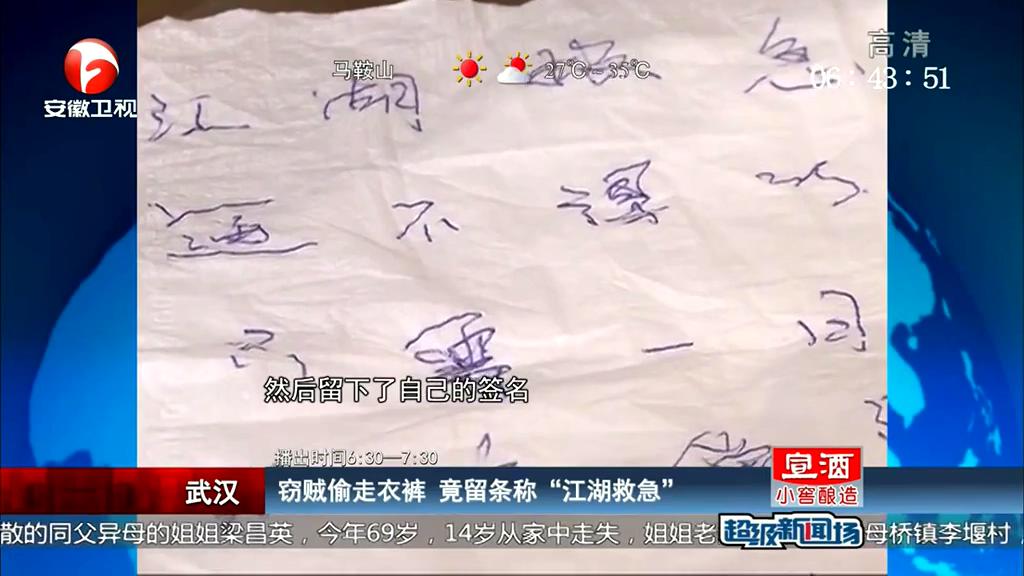 高清
马鞍山 27℃~35℃
06:43:51
安徽卫视
江湖 急
不
一
然后留下了自己的签名
播出时间6:30—7:30
武汉 窃贼偷走衣裤 竟留条称“江湖救急”
宣酒
小窖酿造
散的同父异母的姐姐梁昌英，今年69岁，14岁从家中走失，姐姐老
超级新闻场
母桥镇李堰村，